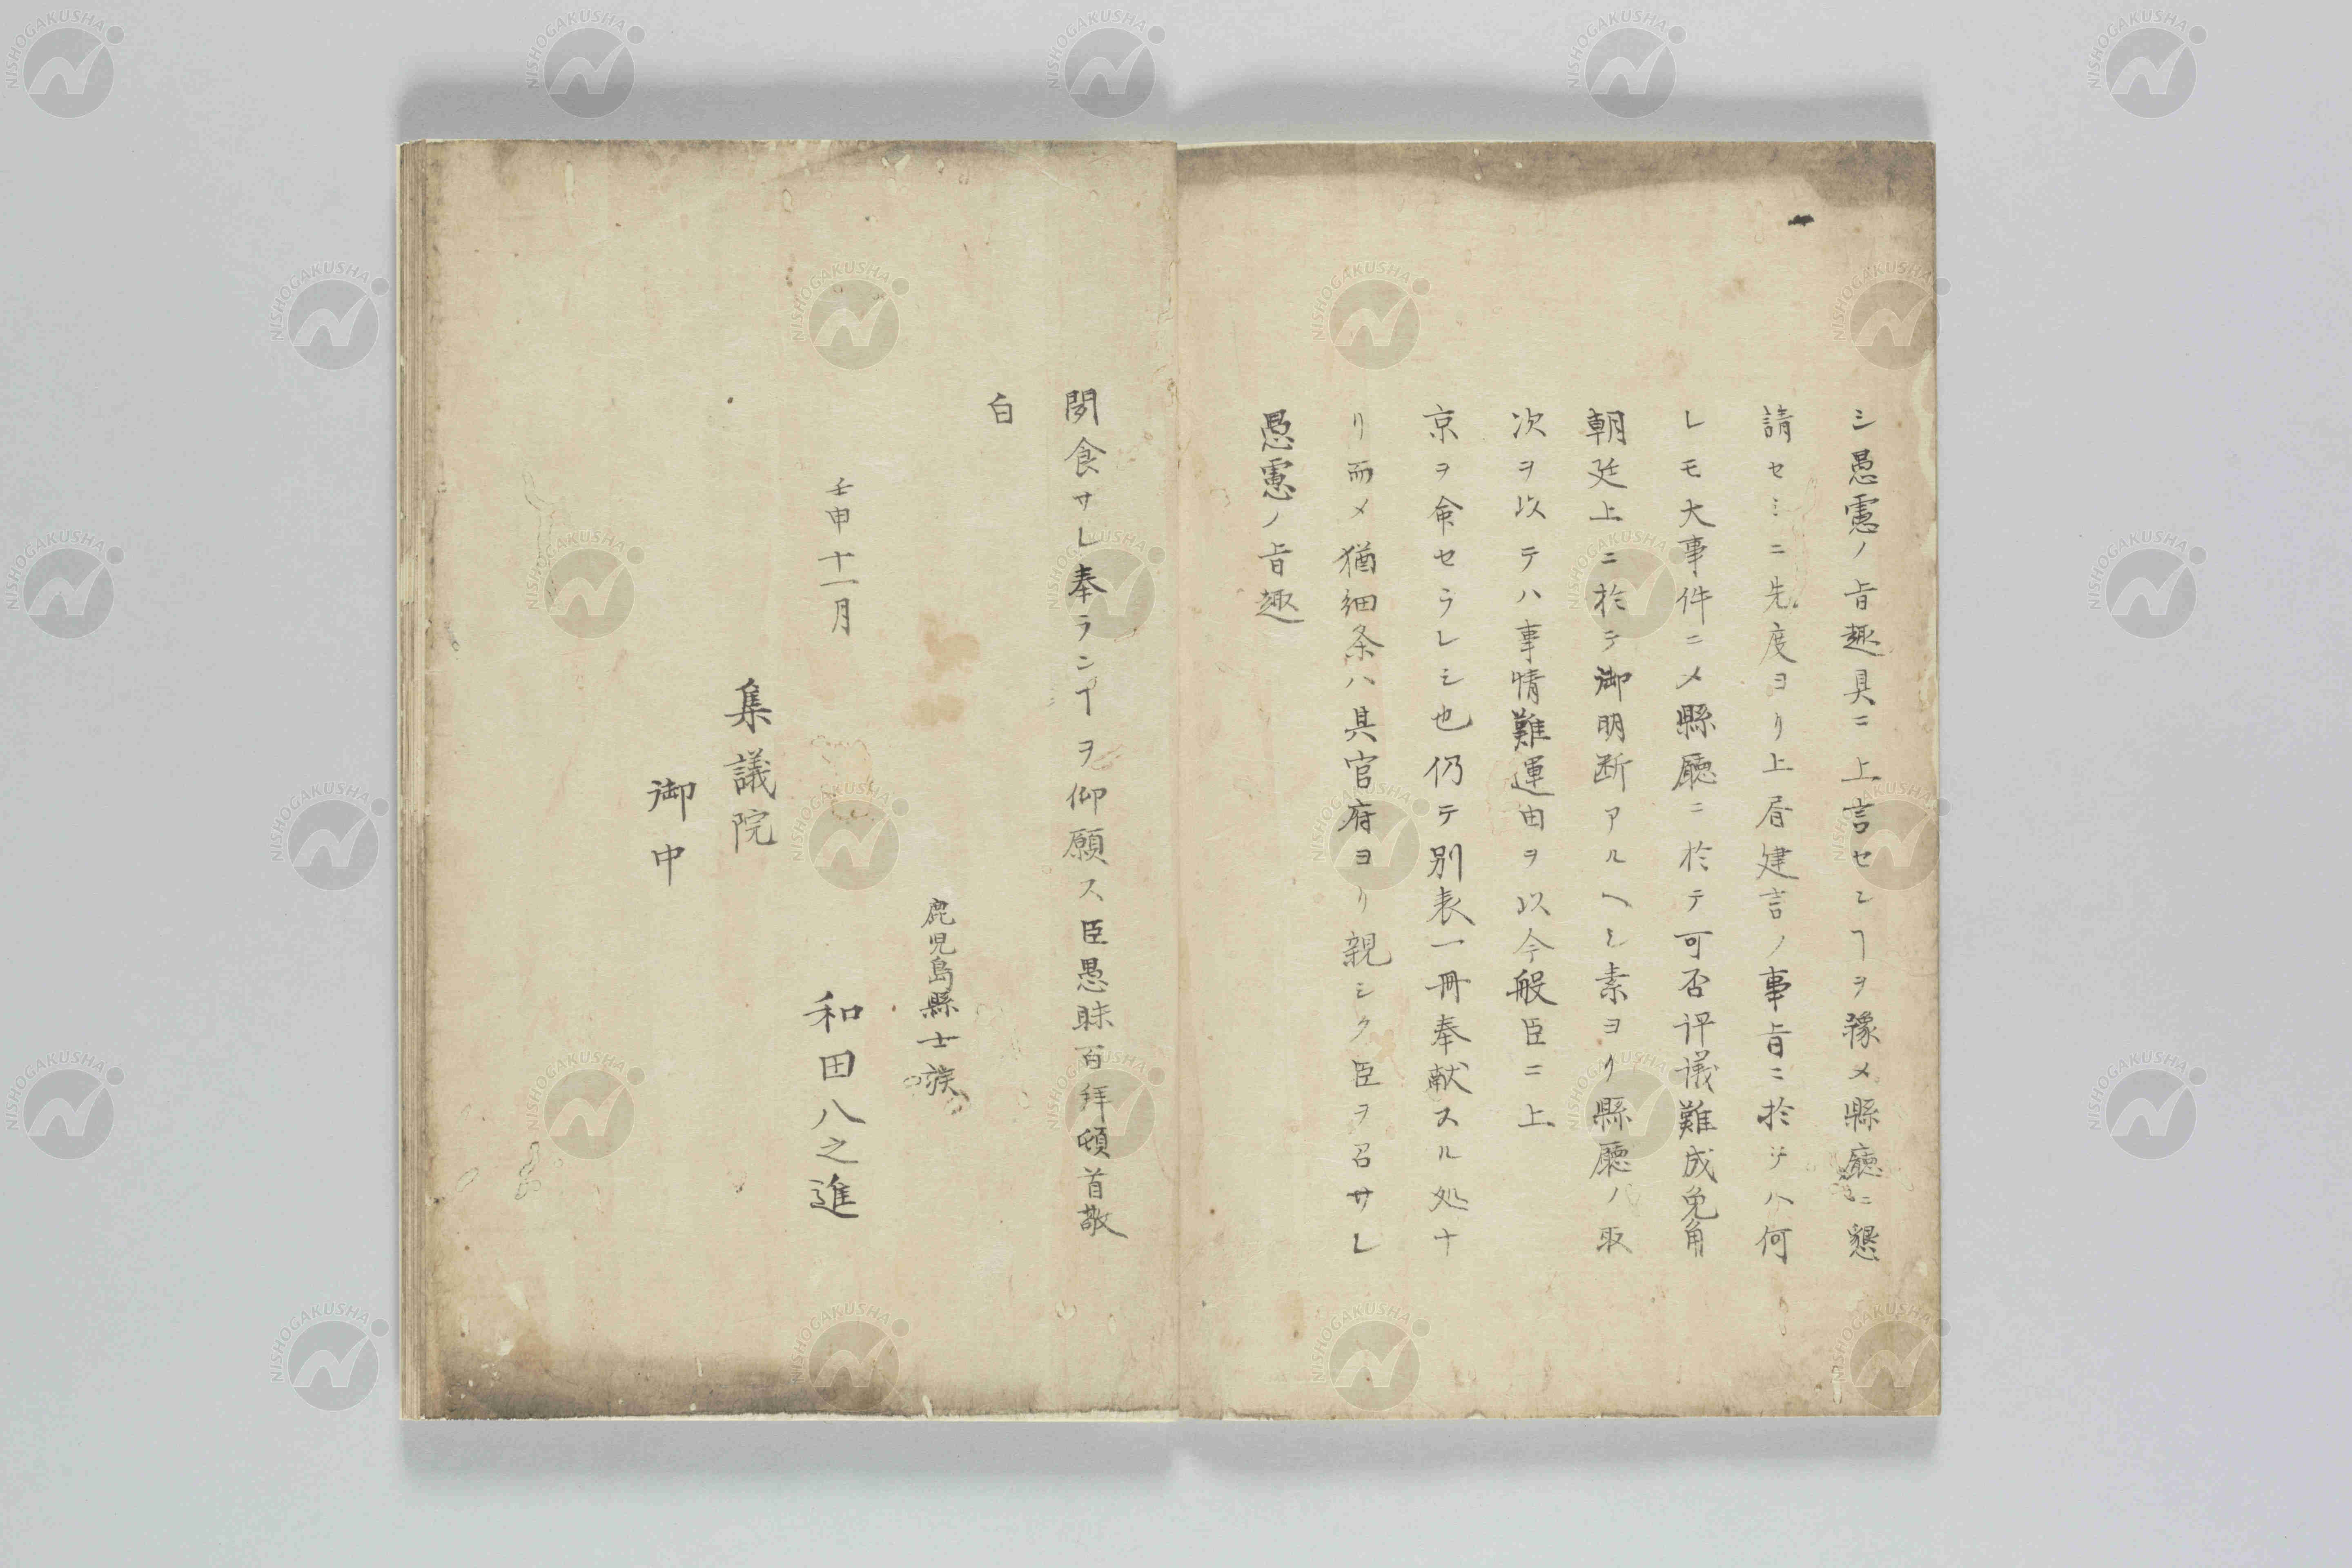 シ愚慮ノ旨趣具ニ上言セシヿヲ豫メ縣廳ニ懇
請セシニ先度ヨリ上層建言ノ事旨ニ於テハ何
レモ大事件ニメ縣廳ニ於テ可否评議難成免角
朝廷上ニ於テ御明断アルヘシ素ヨリ縣廳ノ取
次ヲ以テハ事情難運由ヲ以今般臣ニ上
京ヲ命セラレシ也仍テ別表一冊奉献スル処ナ
リ而メ猶細条ハ具官府ヨリ親シク臣ヲ召サレ
愚慮ノ旨趣
聞食サレ奉ランヿヲ仰願ス臣愚昧百拜頓首敬
白
鹿児島縣士族
壬申十一月 和田八之進
集議院
御中